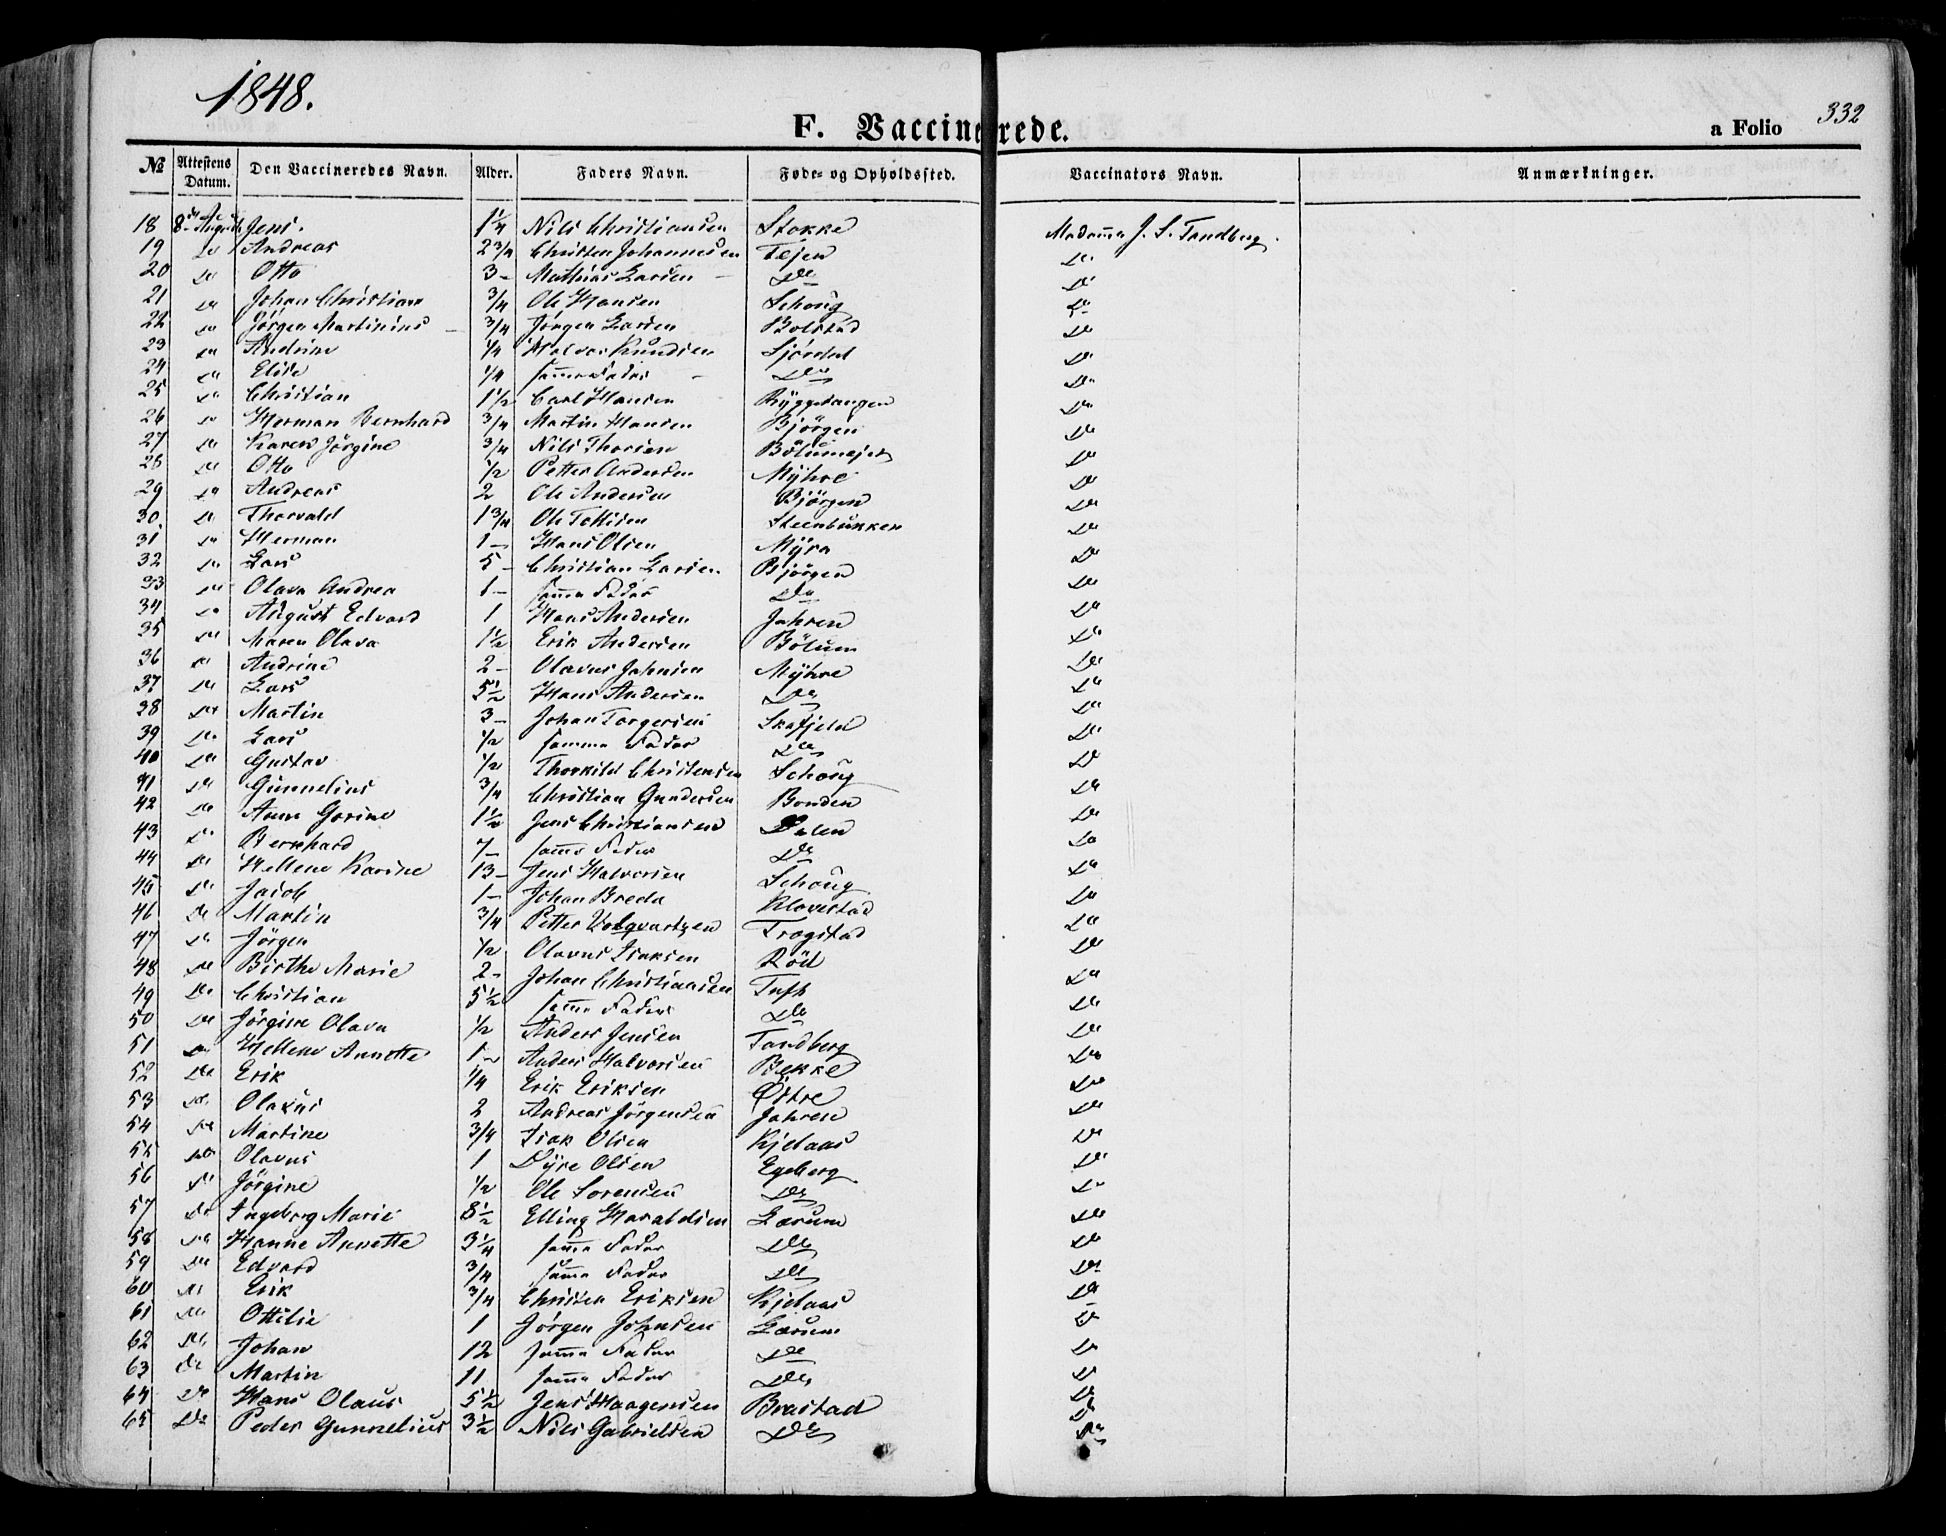 1848.
F. Vaccinerede.
a Folio 332
№ Attestens Datum. Den Vaccineredes Navn. Alder. Faders Navn. Føde- og Opholdssted. Vaccinators Navn. Anmærkninger.
18 8de August Jens. 1 1/4 Nils Christiansen Stokke Madame J. S. Tandberg.
19 Do Andreas 2 3/4 Christen Johannesen Tejen Do
20 Do Otto 3 – Mathias Larsen – Do Do
21 Do Johan Christian 3/4 Ole Hansen Schoug Do
22 Do Jörgen Martinius – 3/4 Jörgen Larsen Bolstad Do
23 Do Andrine 1/4 Halvor Knudsen Sjördal Do
24 Do Elise 1/4 samme Fader – Do Do
25 Do Christian 1 1/2 Carl Hansen Ryggetangen Do
26 Do Herman Bernhard 3/4 Martin Hansen Björgen Do
27 Do Karen Jörgine 3/4 Nils Thorsen Bölumejet Do
28 Do Otto 1/2 Petter Andersen Myhre Do
29 Do Andreas 2 Ole Andersen Björgen Do
30 Do Thorvald 1 3/4 Ole Tollefsen Steenbukken Do
31 Do Herman 1 – Hans Olsen Myra Do
32 Do Lars 5 – Christian Larsen Björgen Do
33 Do Olava Andrea 1 – samme Fader Do Do
34 Do August Edvard 1 Hans Andersen Jahren Do
35 Do Maren Olava 1 1/2 Erik Andersen Bölum Do
36 Do Andrine 2 – Olavus Johnsen Myhre Do
37 Do Lars 5 1/2 Hans Andersen Do Do
38 Do Martin 3 – Johan Torgersen Skafjeld Do
39 Do Lars 1/2 samme Fader Do Do
40 Do Gustav 1/2 Thorkild Christensen Schoug Do
41 Do Gunnelius 3/4 Christian Gundersen Bonden Do
42 Do Anne Gorine 1 1/2 Jens Christiansen Dalen Do
43 Do Bernhard 7 – samme Fader Do Do
44 Do Hellene Karine 13 – Jens Halvorsen Schoug Do
45 Do Jacob 1 – Johan Breda Klovestad Do
46 Do Martin 3/4 Petter Volqvartzen Trogstad Do
47 Do Jörgen 1/2 Olavus Isaksen Röd Do
48 Do Birthe Marie 2 – Johan Christiansen Tuft Do
49 Do Christian 5 1/2 samme Fader Do Do
50 Do Jörgine Olava 1/2 Anders Jensen Tandberg Do
51 Do Hellene Annette 1 – Anders Halvorsen Bekke Do
52 Do Erik 1/4 Erik Eriksen Östre Do
53 Do Olavus 2 Andreas Jörgensen Jahren Do
54 Do Martine 3/4 Isak Olsen Kjelaas Do
55 Do Olavus 1 Dyre Olsen Egeberg Do
56 Do Jörgine 1/2 Ole Sorensen Do Do
57 Do Ingeborg Marie 8 1/2 Elling Haraldsen Lærum Do
58 Do Hanne Annette 3 1/4 samme Fader Do Do
59 Do Edvard 3/4 samme Fader Do Do
60 Do Erik 3/4 Christen Eriksen Kjelaas Do
61 Do Ottilie 1 Jörgen Johnsen Lærum Do
62 Do Johan 12 samme Fader Do Do
63 Do Martin 11 samme Fader Do Do
64 Do Hans Olaus 5 1/2 Jens Haagensen Brastad Do
65 Do Peder Gunnelius 3 1/2 Nils Gabrielsen Do Do